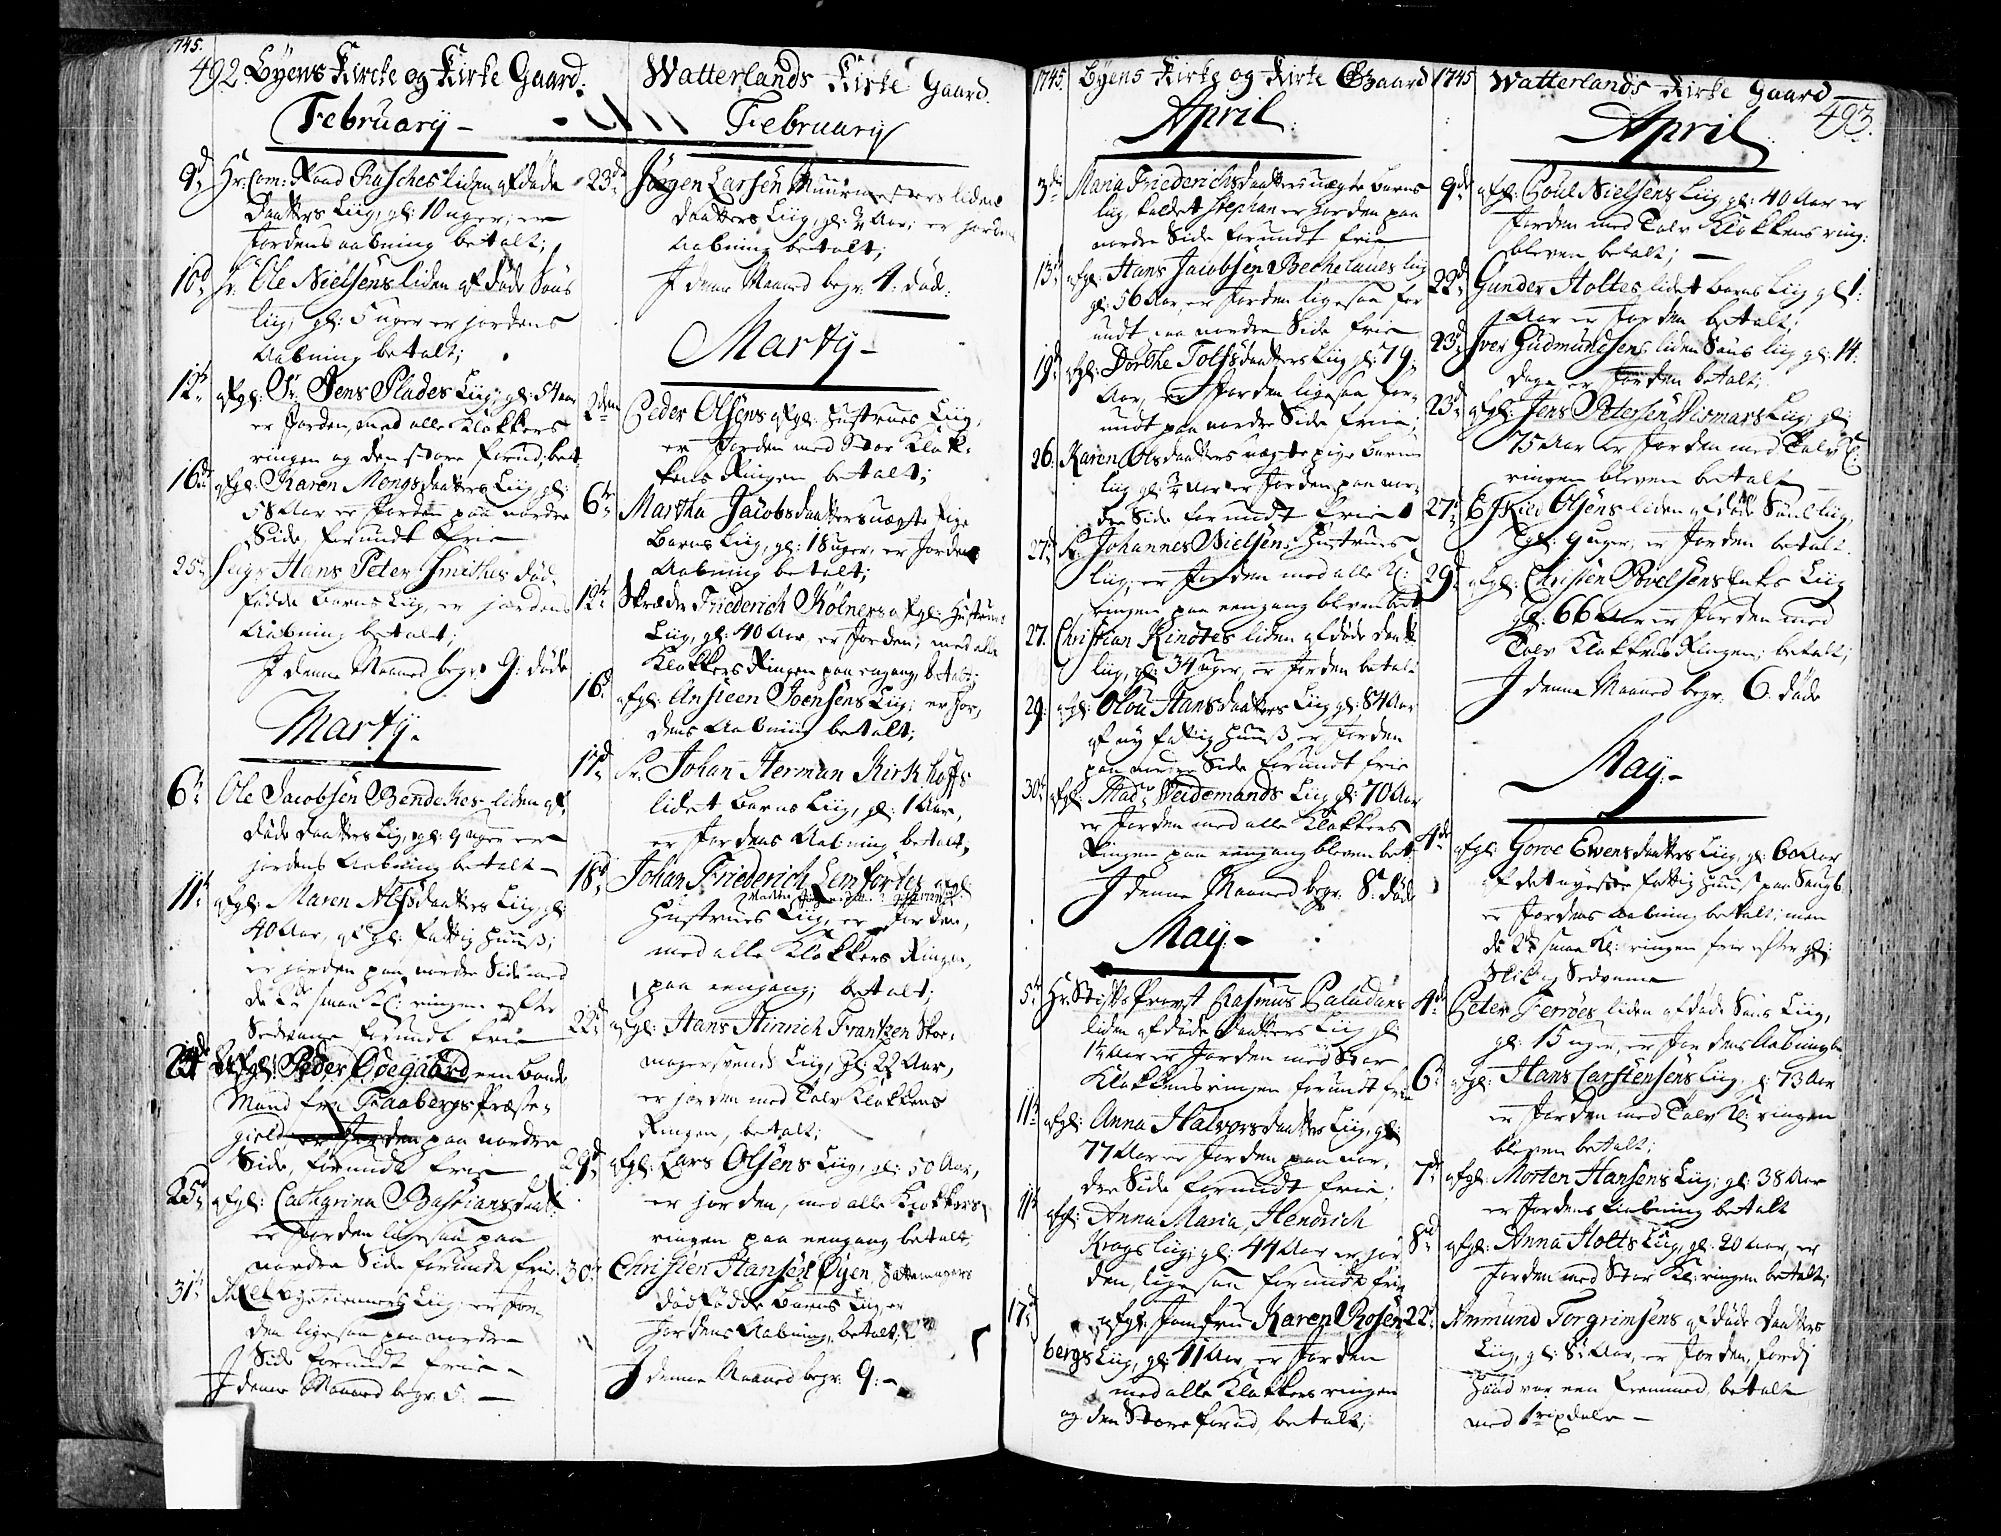 1745.
492. Byens Kircke og Kirke Gaard.
February
9d Hr: Com: Raad Rasches liden afdøde
Daatters Liig, gl: 10 uger; er
Jordens aabning betalt;
10d Sr. Ole Nielsens liden afdøde Søns
liig, gl: 5 uger er jordens
Aabning betalt;
12t afgl: Sr. Jens Plades Liig; gl: 54 aar
er Jorden, med alle Klokkers
ringen og den store forud; bet.
16d afgl: Karen Mongsdaatters Liig gl:
58 Aar er Jorden paa nordre
Side, forundt Frie
25d Seigr Hans Peter Smithes død-
fødde Barns Liig er jordens
Aabning betalt;
I denne Maaned begr: 9: døde
Marty.
6t Ole Jacobsen Bendekes liden af-
døde daatters Lig, gl: 9 uger er
jordens Aabning betalt
11t afgl: Maren Alfsdaatters Liig, gl:
40 Aar, af gl: Fattig Huuß;
er jorden paa nordre Side med
de 2de smaa Kl: ringen efter
Sedvane forundt frie
afgl: Peder Øegaard, een Bonde
Mand fra Faabergs Præste-
gield er Jorden paa nordre
Side, forundt frie
25d afgl: Cathrina Bastiansdaat:
er Jorden ligesaa paa
nordre Side forundt frie
31t Liig; er Jor-
den ligesaa paa nordre
Side forundt frie
I denne Maaned begr: 5.
Watterlands Kirke Gaard.
February
23d Jørgen Larsen Muurmesters liden
daatters Liig, gl: 3/4 Aar; er jordens
Aabning betalt;
I denne Maaned begr: 4: døde:
Marty
2den Peder Olsens afgl: Hustrues Liig,
er Jorden med Stor Klok-
kens Ringen betalt;
6te Martha Jacobsdaatters uægte Pige
Barns Liig, gl: 18 uger, er Jordens
Aabning betalt;
12t Skræder Friederich Kølners afgl: Hustrues
Liig, gl: 40 Aar er Jorden, med alle
Klokkers Ringen paa engang, betalt;
16d afgl: Ansteen Joensens Liig; er Jor-
dens Aabning betalt;
17d Sr. Johan Herman Kirkhoffs
lidet Barns Liig, gl: 1 Aar,
er Jordens Aabning betalt,
18d Johan Friederich Lemførtes afgl:
Hustrues Liig, er Jorden,
med alle Klokkers Ringen,
paa eengang; betalt;
22d afgl: Hans Hinrich Frantzen Skoe-
magersvends Liig, gl: 22 Aar,
er jorden med Tolv Klokkens
Ringen, betalt;
29d afgl: Lars Olsens Liig, gl: 50 Aar,
er jorden, med alle Klokkers
ringen paa eengang betalt
30d Christen Hansen Øyen, Hattemagers
dødfødde Barns Liig er
Jordens Aabning, betalt;
I denne Maaned begr: 9:
1745 Byens Kirke og Kirke Gaard
April
3die Maria Friederichsdaatters uægte Barns
liig kaldet Stephan er Jorden paa
nordre Side forundt frie
13d afgl: Hans Jacobsen Bechelaues liig
gl: 56 Aar, er Jorden ligesaa for
undt paa nordre Side frie
19d afgl: Dorthe Tolfsdaatters Liig gl: 79:
Aar, er Jorden ligesaa for-
undt paa nordre Side frie;
26. Karen Olsdaatters uægte pige Barns
liig gl: 3/4 Aar er Jorden paa nor-
dre Side forundt frie
27d Sr. Johannes Nielsens Hustrues
liig; er Jorden med alle Kl:
ringen paa eengang bleven bet.
27. Christian Kindtes liden afdøde daat:
liig, gl: 34 uger, er Jorden betalt
29: afgl: Olou Hansdaatters Liig gl: 84 Aar
af ny Fattig Huuß er Jorden
paa nordre Side forundt frie
30t afgl: Mad: Weidemands Liig gl: 70 Aar
er Jorden med alle Klokkers
Ringen paa eengang bleven bet
I denne Maaned begr: 8: døde
May.
5t Hr: Stifts Provst Rasmus Paludans
liden afdøde Daatters Liig gl
1 1/4 Aar er Jorden med Stor
Klokkens ringen forundt frie
11t afgl: Anna Halvorsdaatters Liig, gl:
77 Aar er Jorden paa nor-
dre Side forundt frie;
11t afgl: Anna Maria, Hendrich
Krogs liig; gl: 44 Aar er jor
den, lige saa forundt frie
17d afgl: Jomfru Karen Rosen-
bergs Liig, gl: 41 Aar, er Jorden
med alle Klokkers ringen
og den Store forud, betalt;
1745 Watterlands Kirke Gaard
493.
April
9de afgl: Poul Nielsens Liig gl: 40 Aar er
Jorden med Tolv Klokkens ring:
bleven betalt;
22d Gunder Holtes lidet Barns Liig gl: 1:
Aar er Jorden betalt;
23d Iver Gudmundsens liden Søns liig gl: 14:
dage er Jorden betalt;
23d afgl: Jens Petersen Wismars Liig; gl:
75 Aar er Jorden med Tolv Kl:
ringen bleven betalt
27d Olsens liden afdøde Søns liig,
gl: 9 uger, er Jorden betalt.
29d afgl: Christen Povelsens Enkes Liig
gl: 66 Aar er Jorden med
Tolv Klokkens Ringen, betalt;
I denne Maaned begr: 6. døde
May.
4de afgl: Goroe Ewensdaatters Liig, gl: 60 Aar
af det nyeste Fattig Huuß paa Saugb.
er Jordens Aabning betalt; men
de 2de smaa Kl: ringen frie efter gl:
Skik og Sedvane
4de Peter Ferrøes liden afdøde Søns Liig,
gl: 15 uger, er Jordens Aabning be
6t afgl: Hans Carstensens Liig, gl: 73 Aar
er Jorden med Tolv Kl: ringen
bleven betalt;
7d afgl: Morten Hansens Liig; gl: 38 Aar
er Jordens Aabning betalt
8d afgl: Anna Holts Liig, gl: 20 Aar, er
Jorden med Stor Kl: ringen betalt;
22d Ammund Torgrimsens afdøde Daatters
Liig, gl: 8: Aar, er Jorden, fordj
Haand var een Fremmed, betalt
med 1 rixdaler